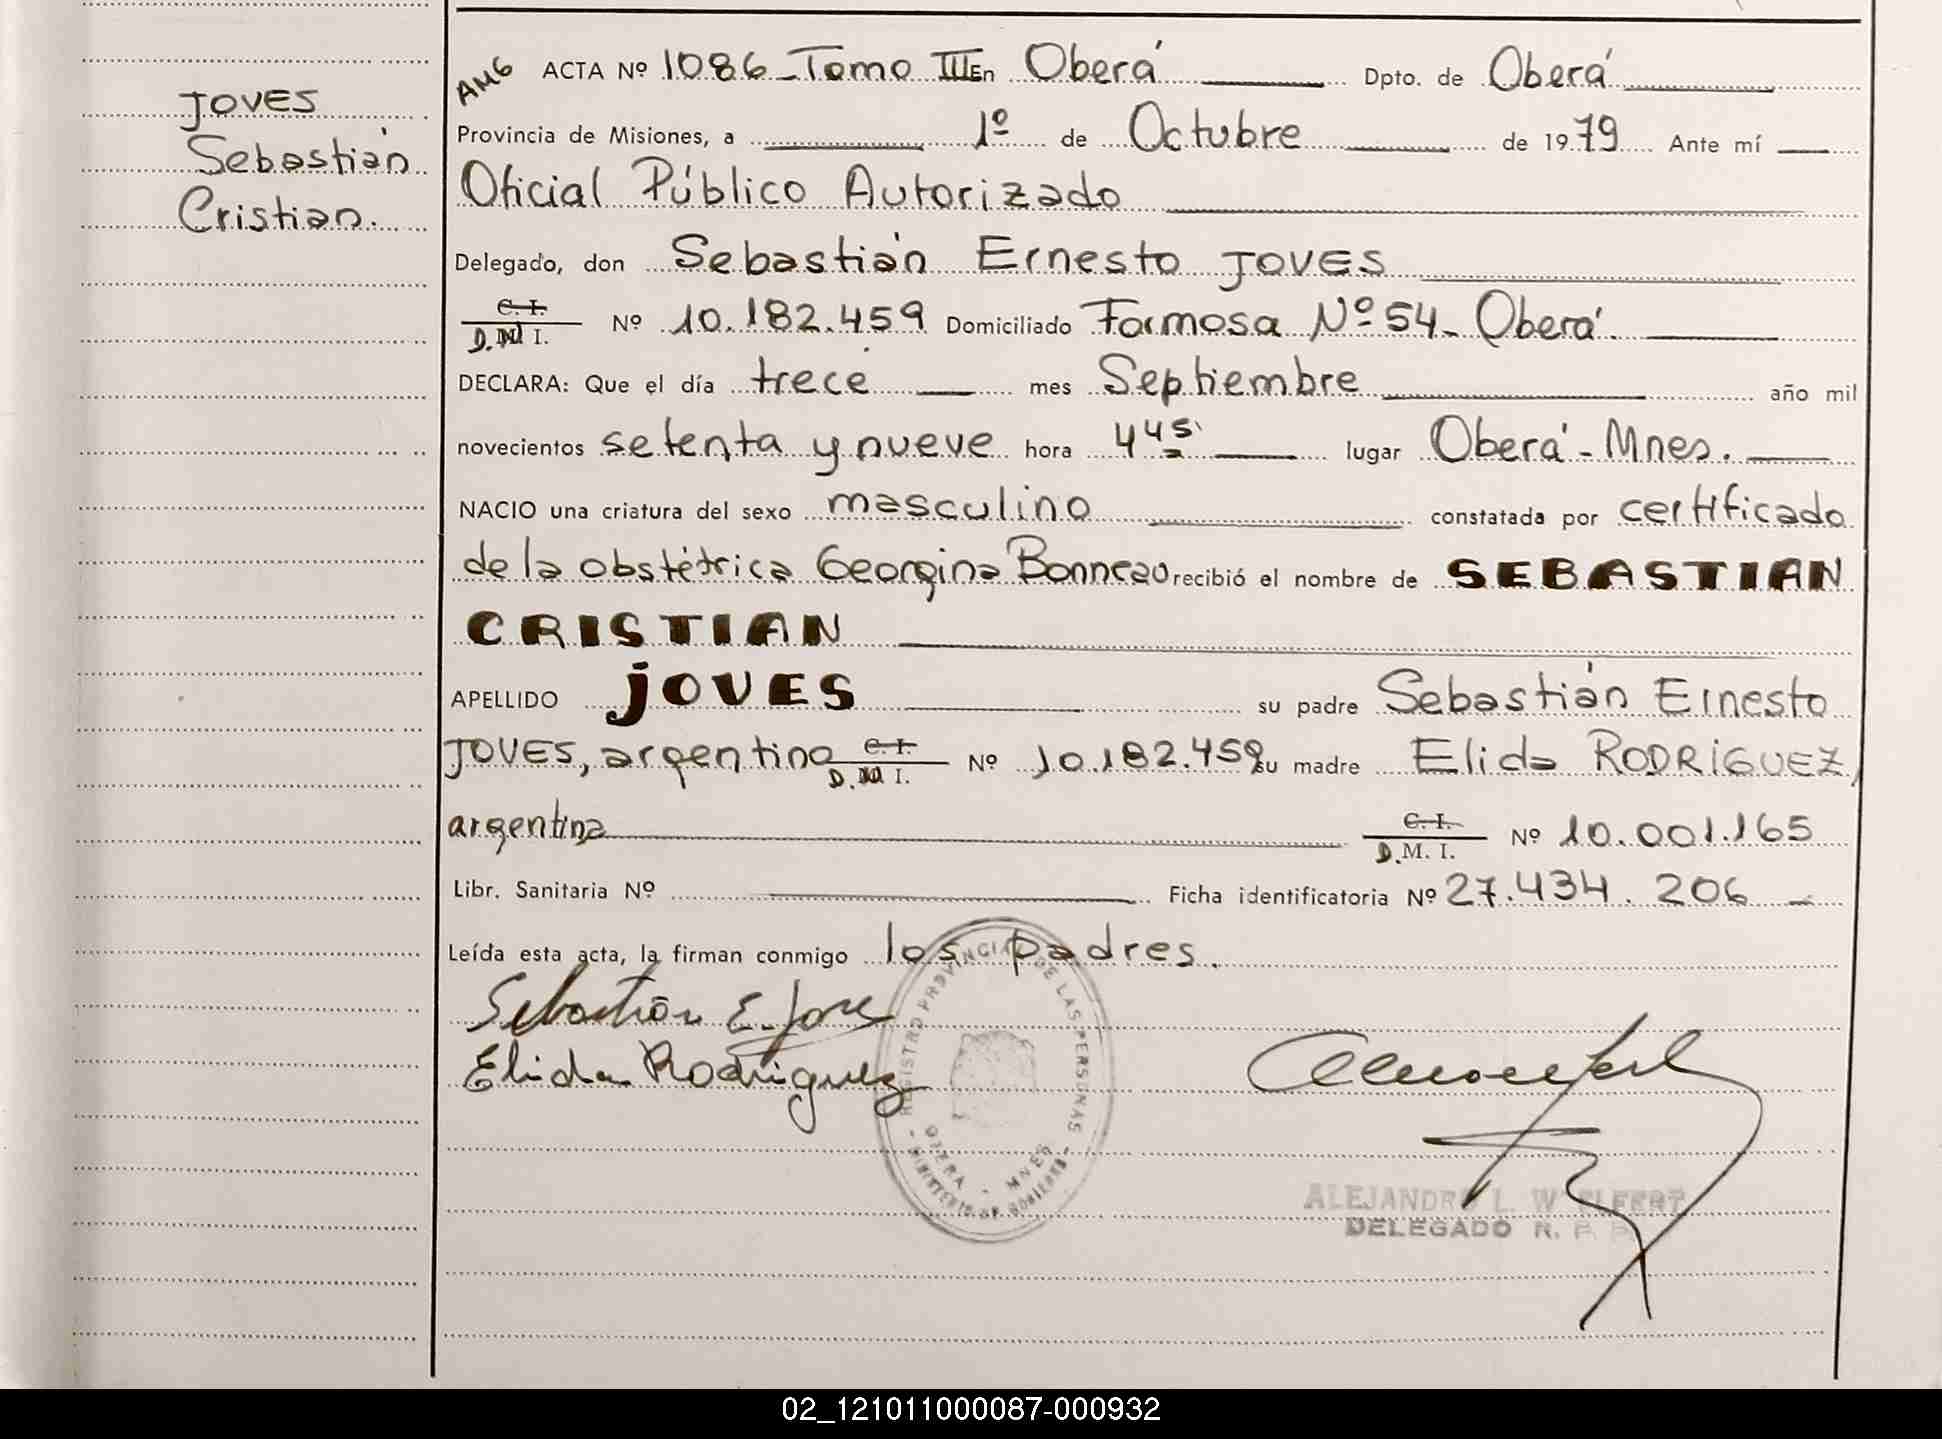 JOVES
Sebastián
Cristian.
AMG ACTA Nº 1086 - Tomo III En Oberá Dpto. de Oberá
Provincia de Misiones, a 1º de Octubre de 1979 Ante mí
Oficial Público Autorizado
Delegado, don Sebastián Ernesto JOVES
C. I.
D.N.I. Nº 10.182.459 Domiciliado Formosa Nº 54 - Oberá.
DECLARA: Que el día trece mes Septiembre año mil
novecientos setenta y nueve hora 4 45 lugar Oberá - Mnes.
NACIO una criatura del sexo masculino constatada por certificado
de la obstétrica Georgina Bonneau recibió el nombre de SEBASTIAN
CRISTIAN
APELLIDO JOVES su padre Sebastián Ernesto
JOVES, argentino C. I. Nº 10.182.459 su madre Elida RODRIGUEZ,
D.N.I.
argentina C. I. Nº 10.001.165
D.M. I.
Libr. Sanitaria Nº Ficha identificatoria Nº 27.434.206 -
Leída esta acta, la firman conmigo los padres.
Sebastián E. Jove
Elida Rodriguez
REGISTRO PROVINCIAL DE LAS PERSONAS
OBERA - MNES
- MINISTERIO DE GOBIERNO -
ALEJANDRO L.
DELEGADO R. P.
02_121011000087-000932